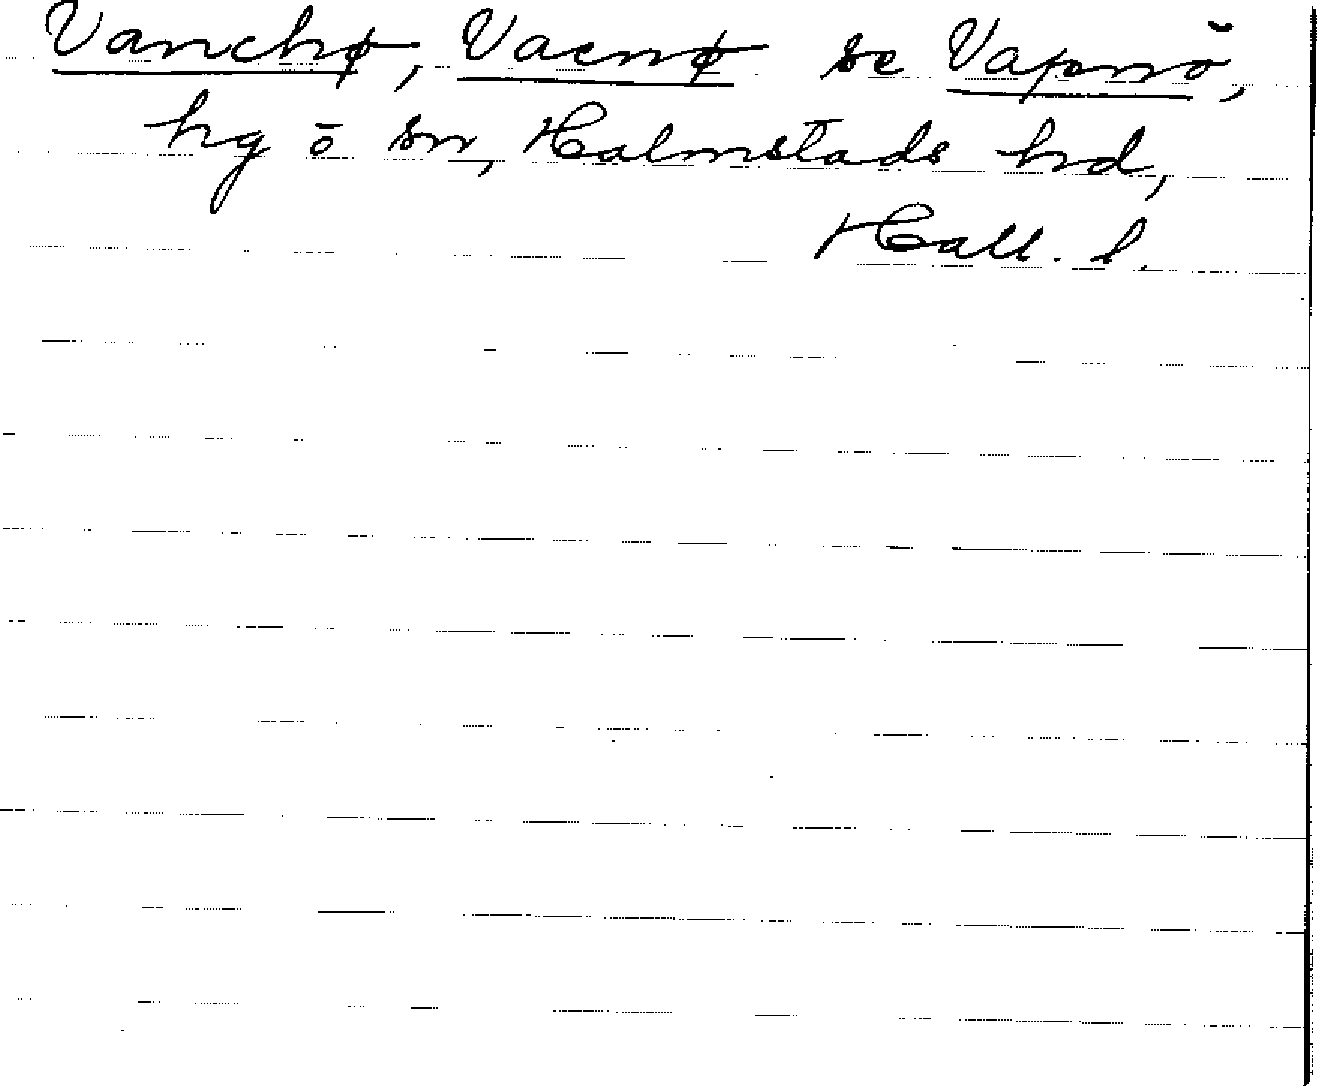 Vanchø, Vaenø se Vapnö,
hg ö sn, Halmstads hd,
Hall. l.